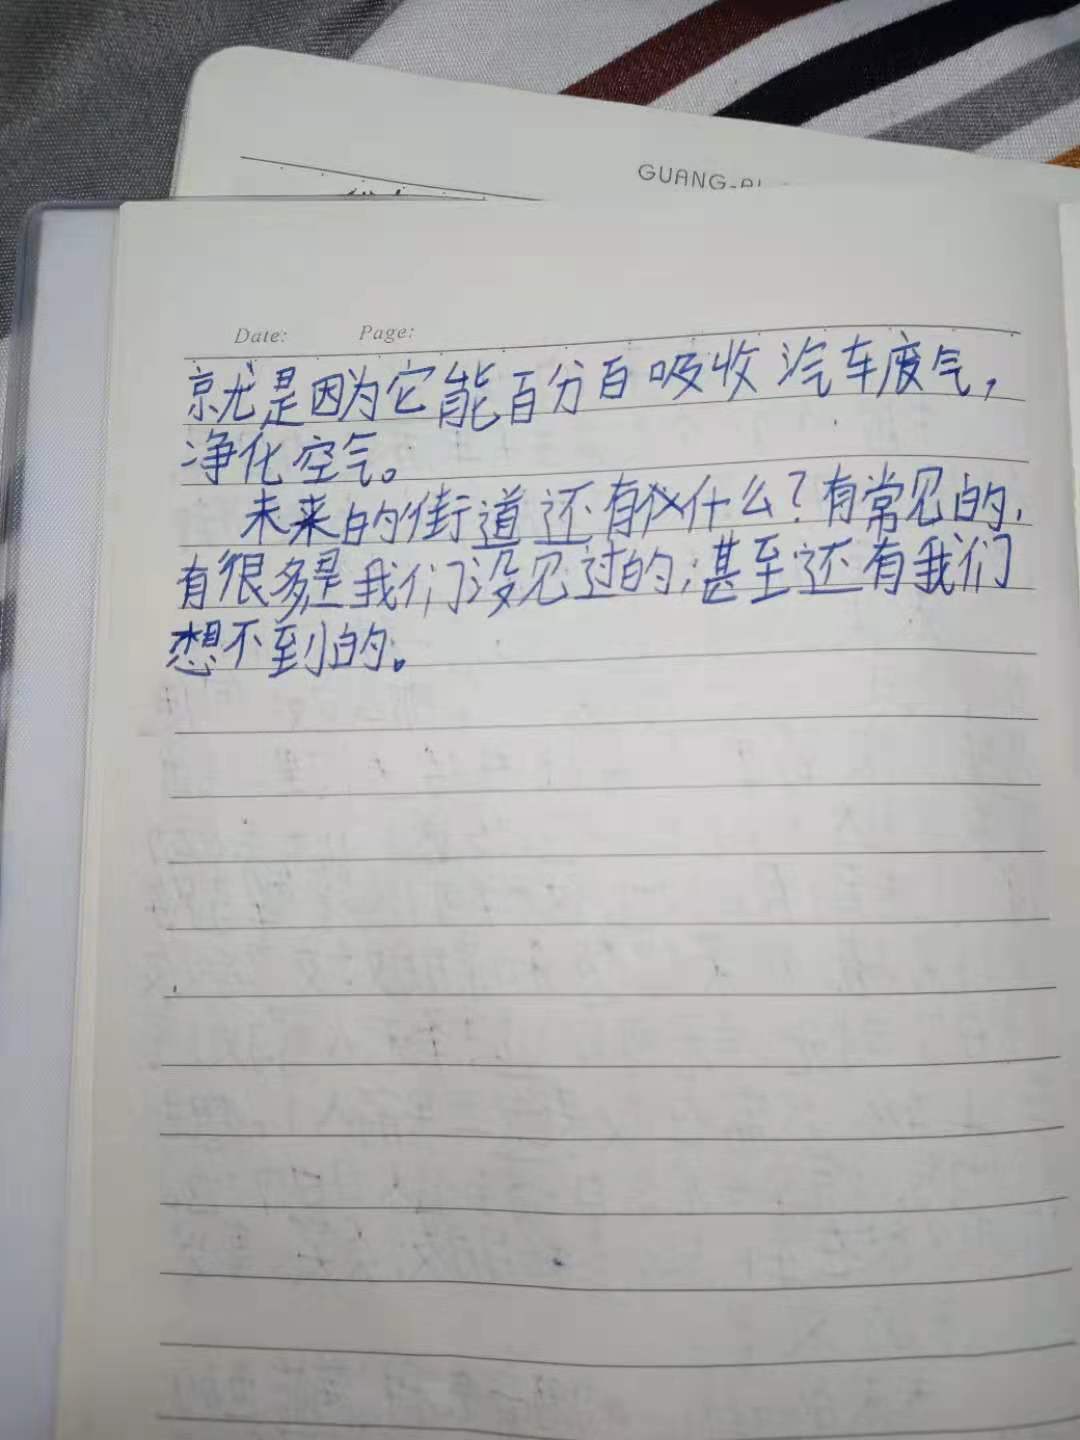 GUANG-
Date: Page:
就是因为它能百分百吸收汽车废气，
净化空气。
未来的街道还有什么？有常见的，
有很多是我们没见过的；甚至还有我们
想不到的。